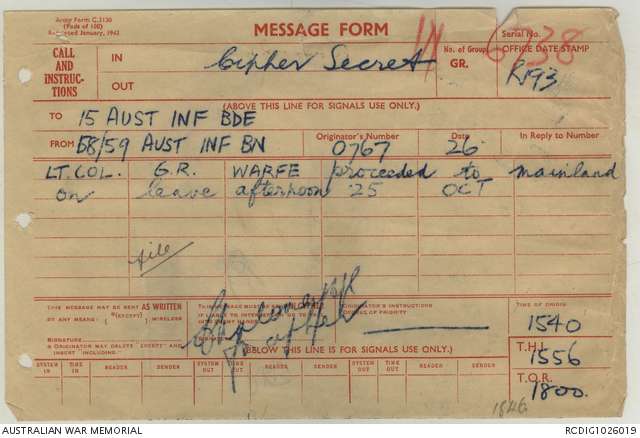 Army Form C.2130
(Pads of 100)
Redesigned January, 1943
MESSAGE FORM
Serial No.
6738
CALL AND INSTRUCTIONS
IN
OUT
Cipher Secret
No. of Group
GR.
OFFICE DATE STAMP
R193
(ABOVE THIS LINE FOR SIGNALS USE ONLY.)
TO 15 AUST INF BDE
FROM 58/59 AUST INF BN
Originator's Number
0767
Date
26
In Reply to Number
LT. COL. G.R. WARFE proceeded to mainland
on leave afternoon 25 OCT
file
THIS MESSAGE MAY BE SENT AS WRITTEN
BY ANY MEANS (EXCEPT) WIRELESS
SIGNATURE
ORIGINATOR MAY DELETE "EXCEPT" AND
INSERT "INCLUDING."
THIS MESSAGE MUST BE
ORIGINATOR'S INSTRUCTIONS
DEGREE OF PRIORITY
TIME OF ORIGIN
1540
T.H.I.
1556
T.O.R.
1800
(BELOW THIS LINE IS FOR SIGNALS USE ONLY.)
SYSTEM IN
TIME IN
READER
SENDER
SYSTEM OUT
TIME OUT
READER
SENDER
SYSTEM OUT
TIME OUT
READER
SENDER
1846
AUSTRALIAN WAR MEMORIAL
RCDIG1026019